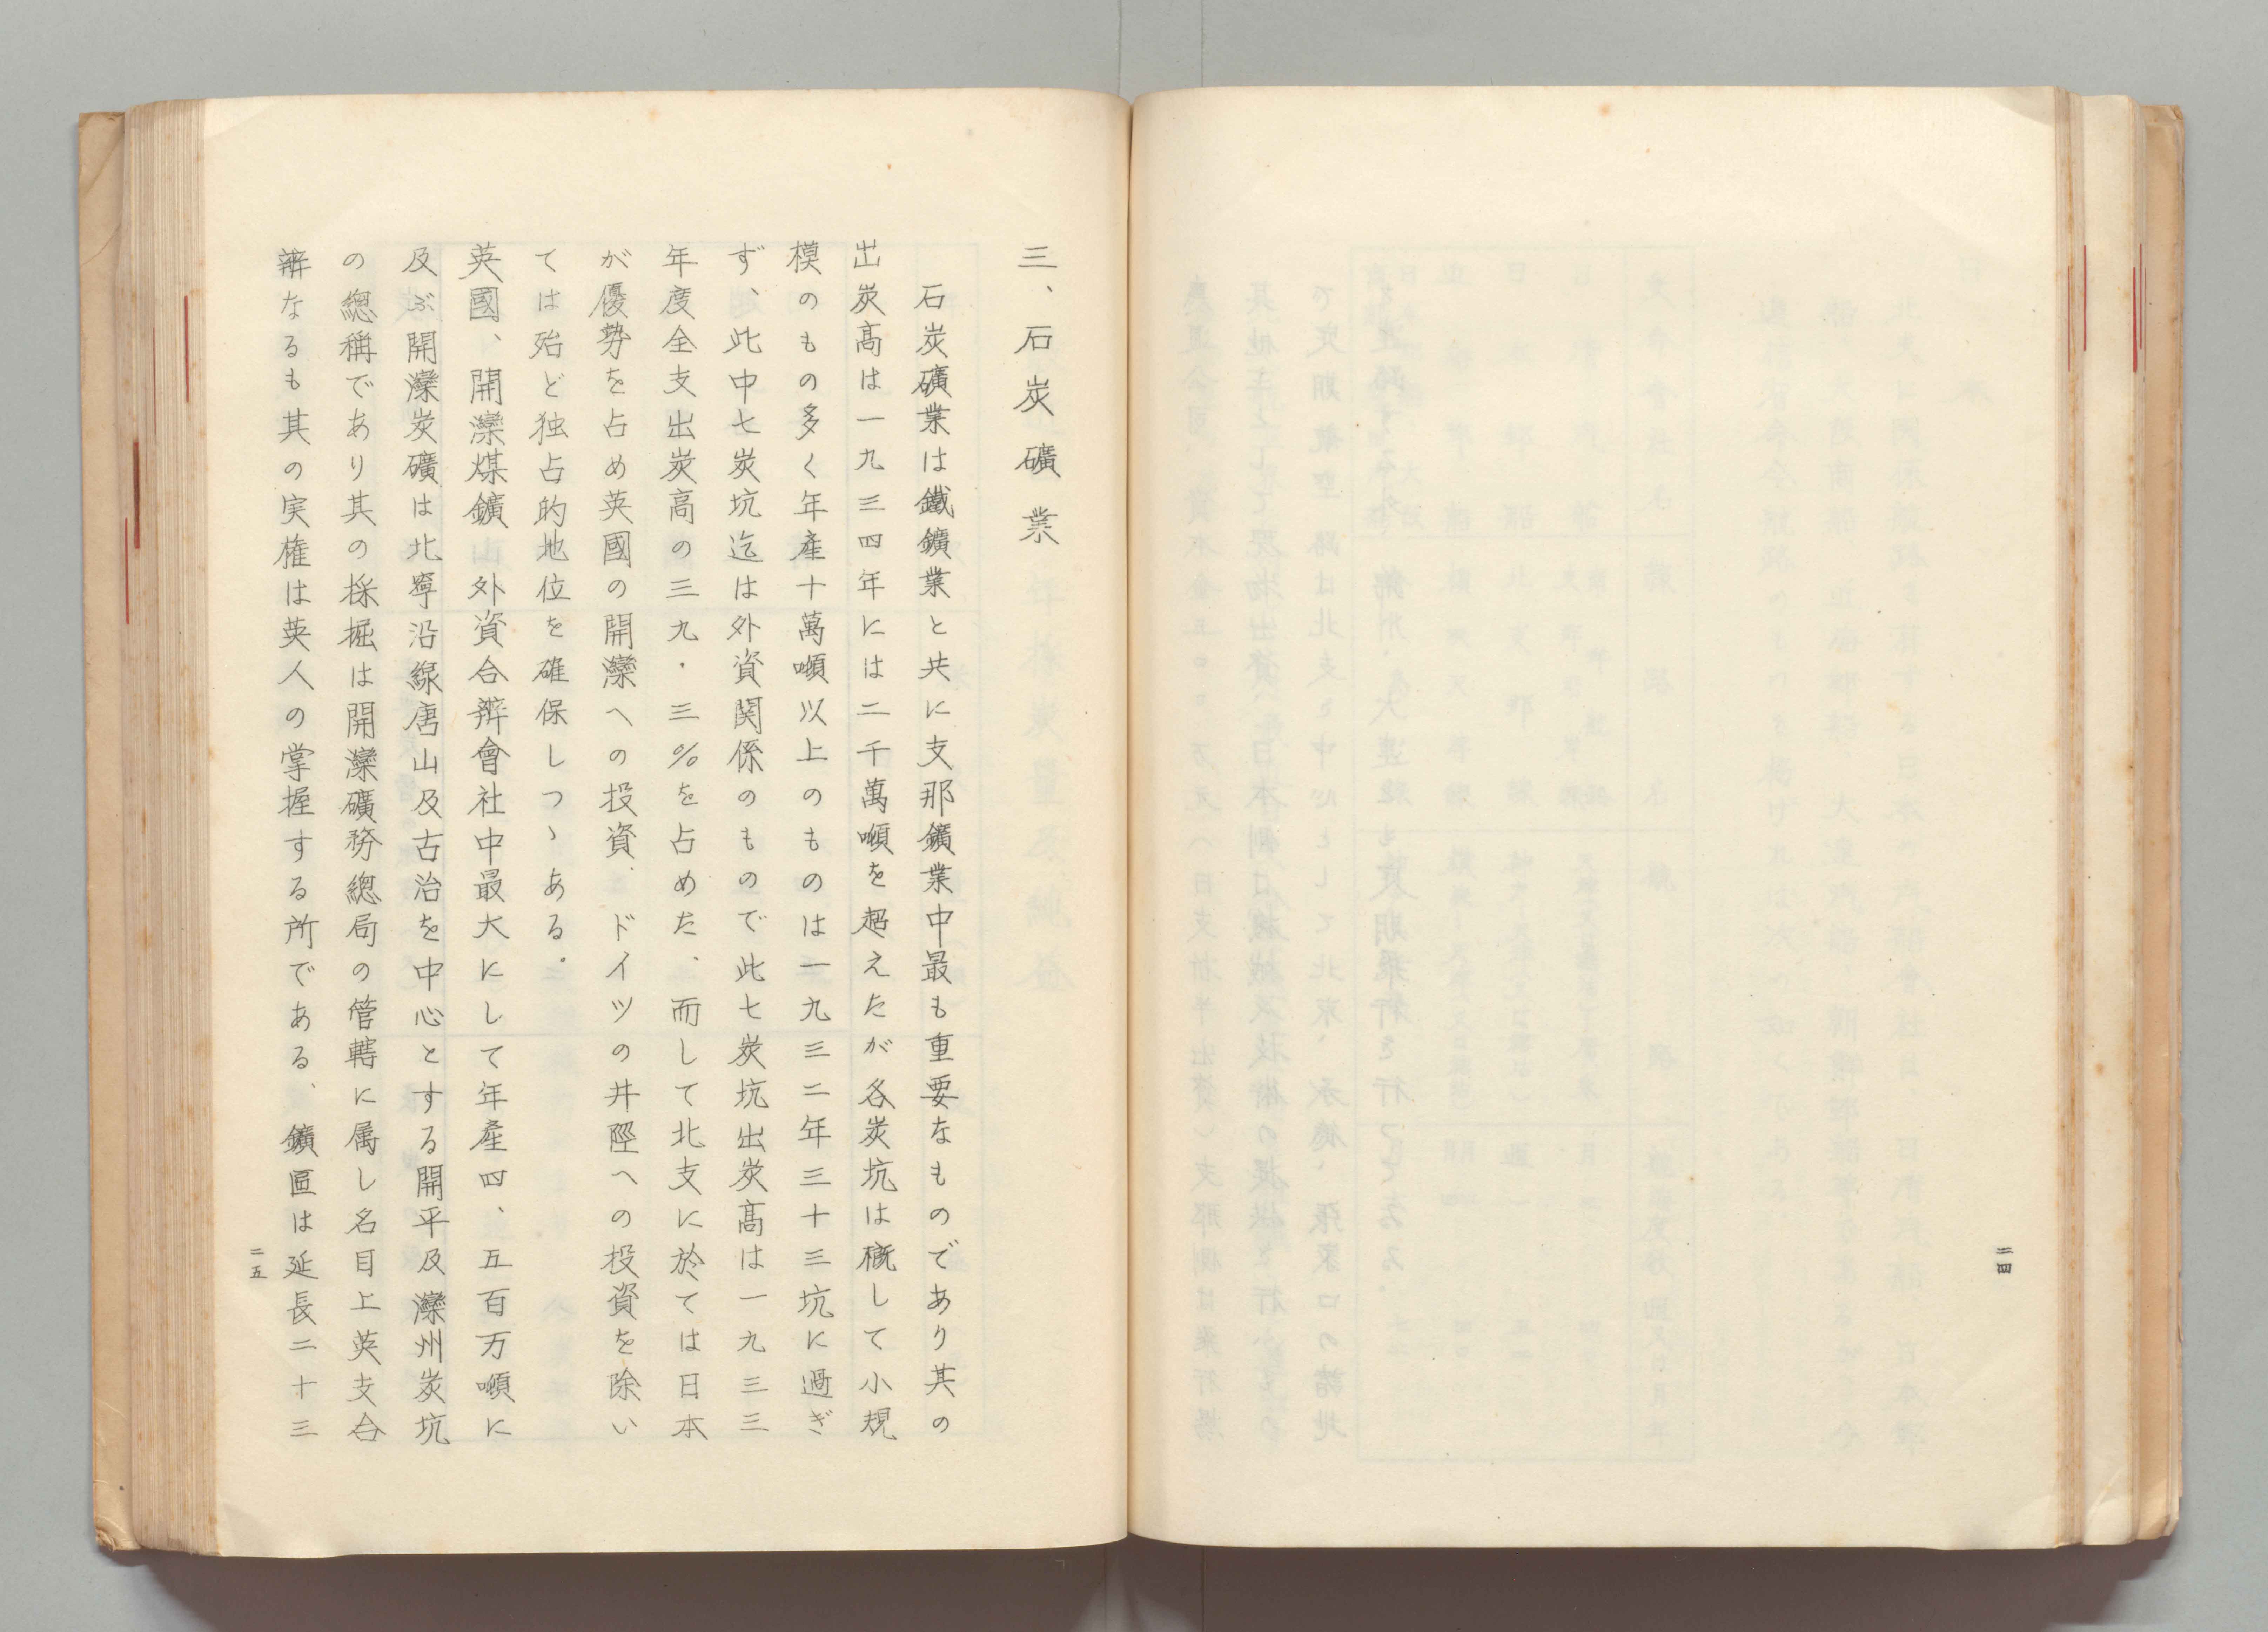 二四
三、石炭礦業
石炭礦業は鐵鑛業と共に支那鑛業中最も重要なものであり其の
出炭高は一九三四年には二千萬噸を超えたが各炭坑は概して小規
模のもの多く年產十萬噸以上のものは一九三二年三十三坑に過ぎ
ず、此中七炭坑迄は外資関係のもので此七炭坑出炭高は一九三三
年度全支出炭高の三九・三％を占めた、而して北支に於ては日本
が優勢を占め英國の開灤への投資、ドイツの井陘への投資を除い
ては殆ど独占的地位を確保しつゝある。
英國、開灤煤鑛 外資合辨會社中最大にして年產四、五百万噸に
及ぶ開灤炭礦は北寧沿線唐山及古治を中心とする開平及灤州炭坑
の總稱であり其の採掘は開灤礦務總局の管轄に属し名目上英支合
辨なるも其の実権は英人の掌握する所である、鑛區は延長二十三
二五